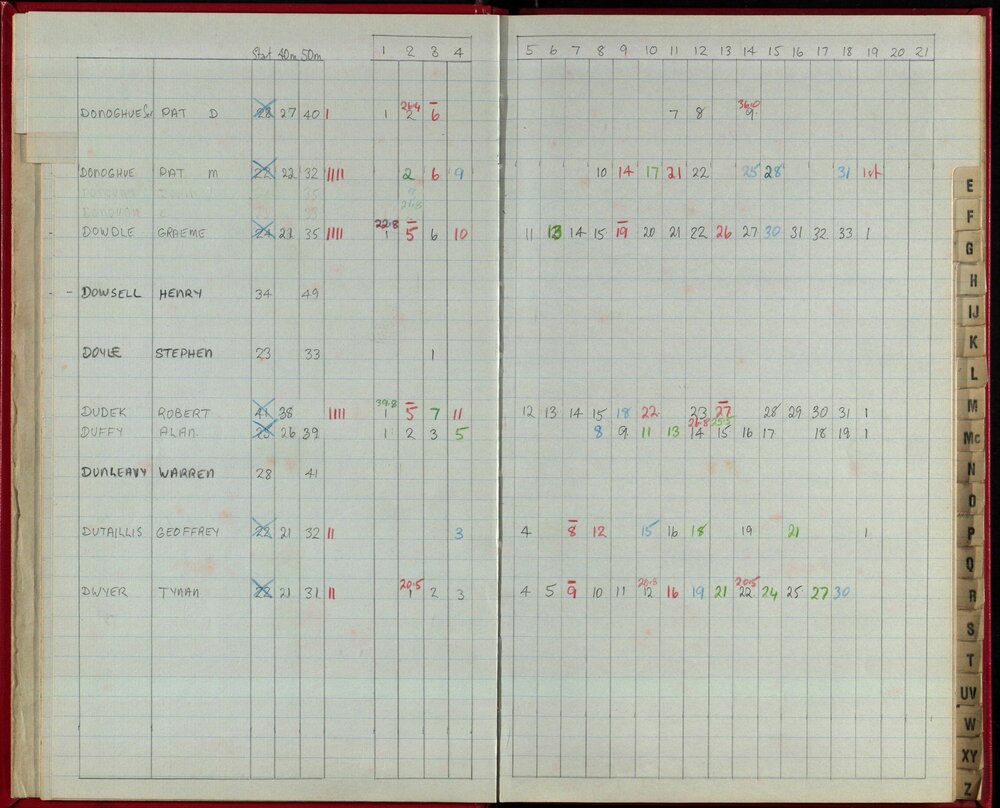 Start 40m 50m 1 2 3 4 5 6 7 8 9 10 11 12 13 14 15 16 17 18 19 20 21
26.4 36.0
DONOGHUE PAT D 28 27 40 I 1 2 6 7 8 9
DONOGHUE PAT M 22 22 32 IIII 2 6 9 10 14 17 21 22 25 28 31 1
22.8
DOWDLE GRAEME 24 21 35 IIII 1 5 6 10 11 13 14 15 19 20 21 22 26 27 30 31 32 33 1
- DOWSELL HENRY 34 49
DOYLE STEPHEN 23 33 1
39.8
DUDEK ROBERT 41 38 IIII 1 5 7 11 12 13 14 15 18 22 23 27 28 29 30 31 1
26.8 25.3
DUFFY ALAN 25 26 39 1 2 3 5 8 9 11 13 14 15 16 17 18 19 1
DUNLEAVY WARREN 28 41
DUTAILLIS GEOFFREY 22 21 32 II 3 4 8 12 15 16 18 19 21 1
20.5 20.5
DWYER TYNAN 22 21 31 II 1 2 3 4 5 9 10 11 12 16 19 21 22 24 25 27 30
E
F
G
H
IJ
K
L
M
Mc
N
O
P
Q
R
S
T
UV
W
XY
Z